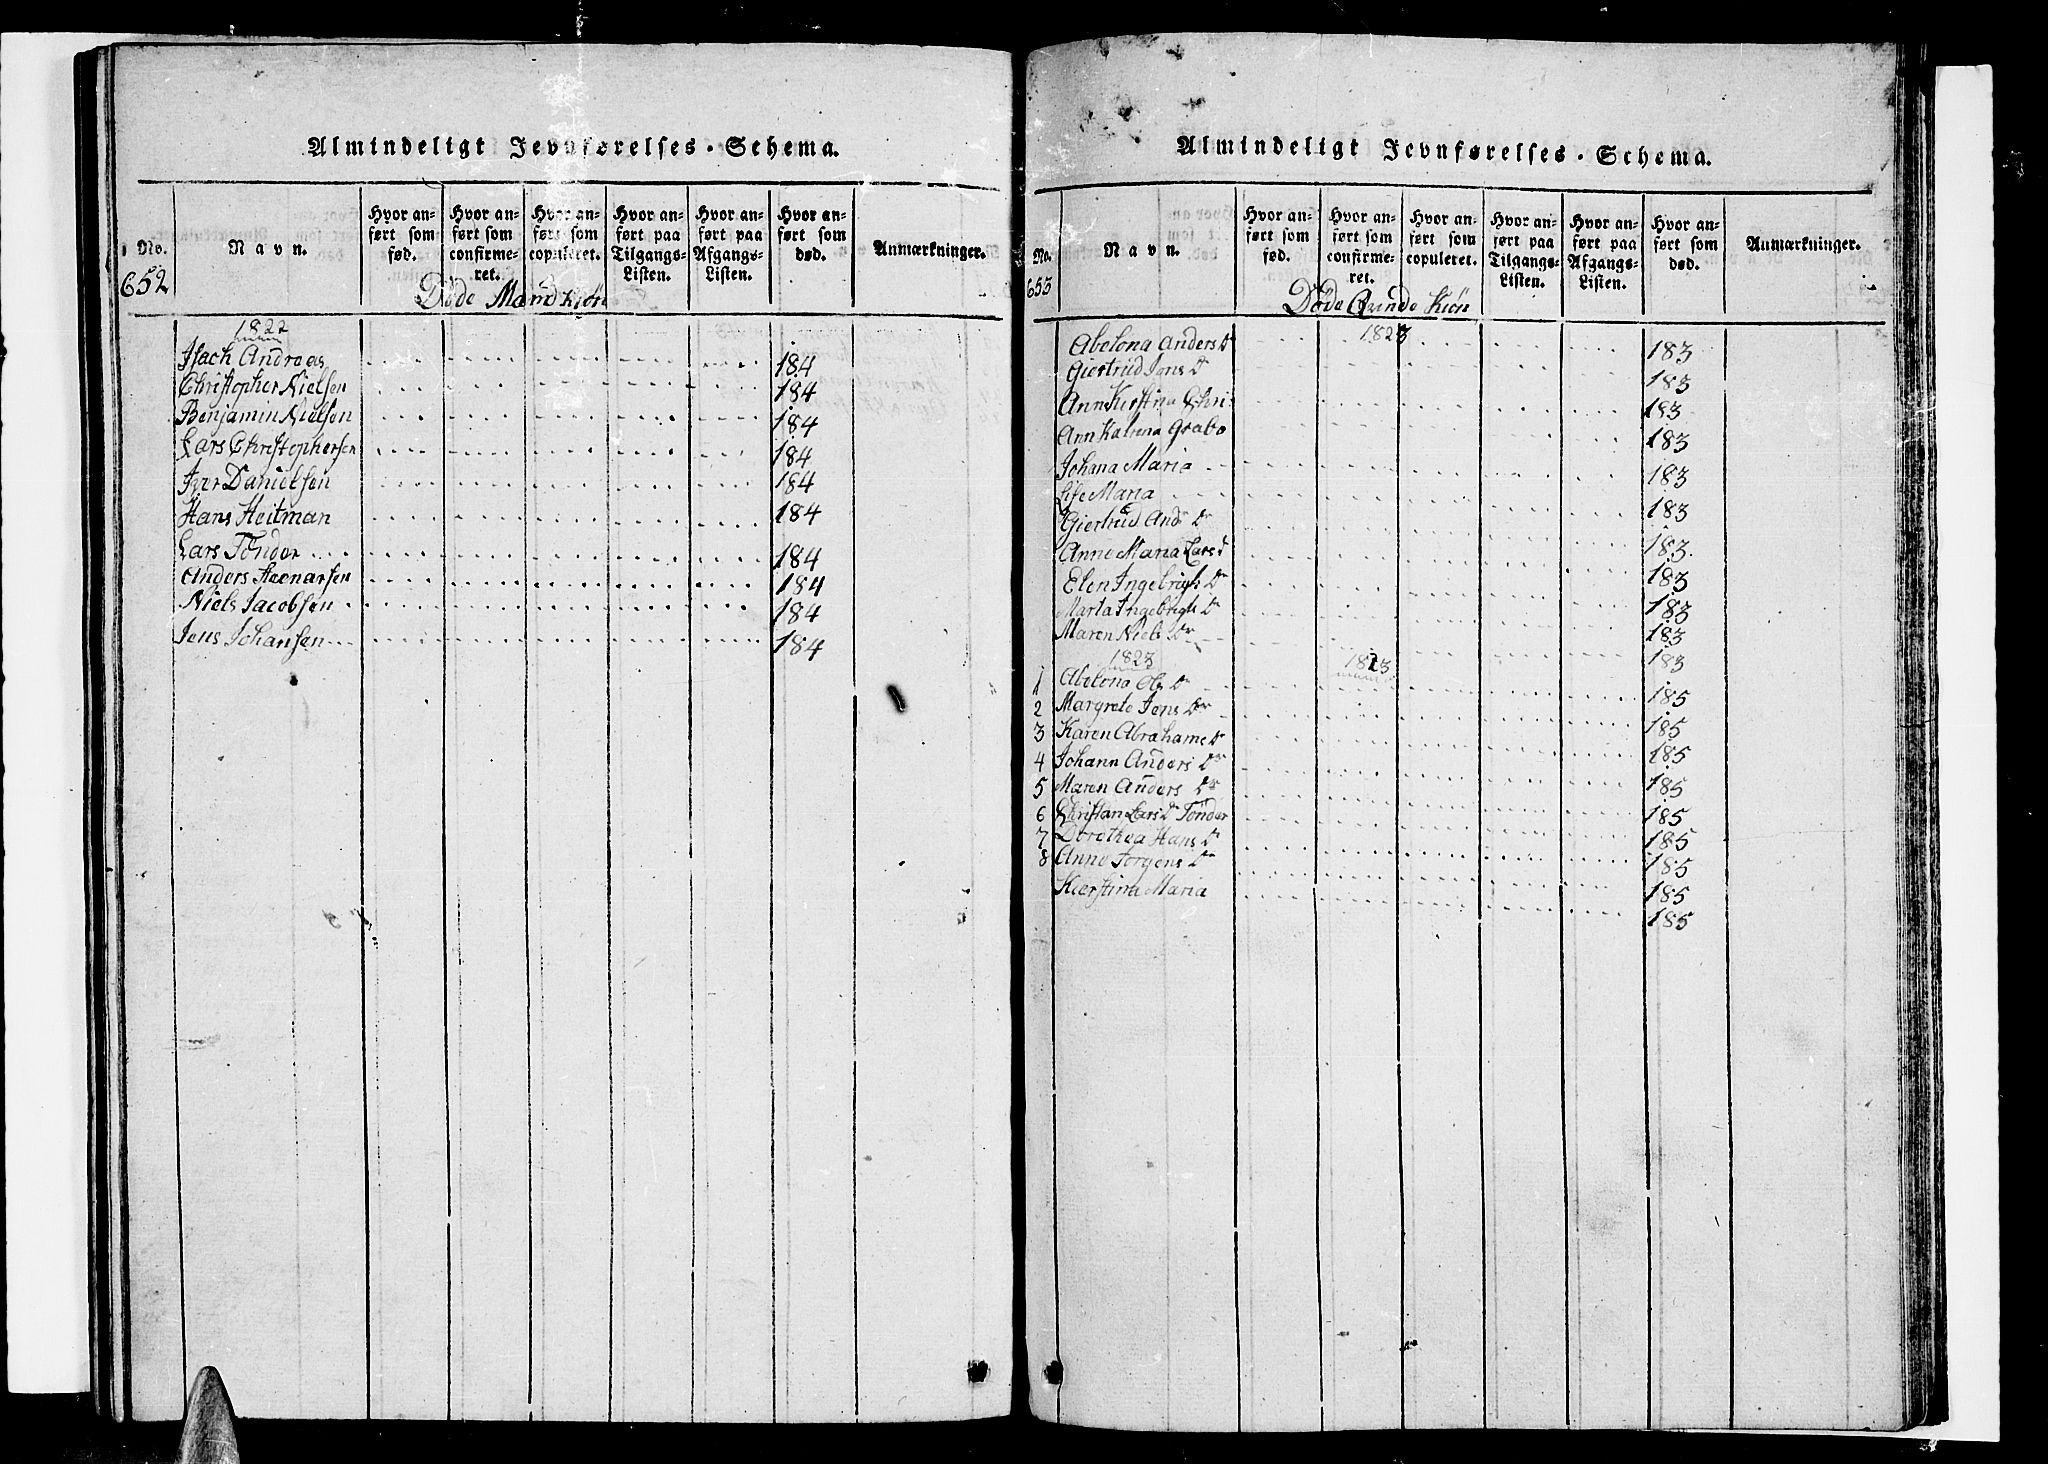 Almindeligt Jevnførelses-Schema.
No.
Navn.
Hvor an-
ført som
fød.
Hvor an-
ført som
confirme-
ret.
Hvor an-
ført som
copuleret.
Hvor an-
ført paa
Tilgangs-
Listen.
Hvor an-
ført paa
Afgangs-
Listen.
Hvor an-
ført som
død.
Anmærkninger.
652
Døde Mandkiøn
1822
Isach Andreas 184
Christopher Nielsen 184
Benjamin Nielsen 184
Lars Christophersen 184
Iver Danielsen 184
Hans Heitman 184
Lars Tønder 184
Anders 184
Niels Jacobsen 184
Jens Johansen 184
Almindeligt Jevnførelses-Schema.
No.
Navn.
Hvor an-
ført som
fød.
Hvor an-
ført som
confirme-
ret.
Hvor an-
ført som
copuleret.
Hvor an-
ført paa
Tilgangs-
Listen.
Hvor an-
ført paa
Afgangs-
Listen.
Hvor an-
ført som
død.
Anmærkninger.
653
Døde Qvinde Kiøn
Abelona Anders Dr 183
Giertrud Jens Dr 183
Ann Kirstina Chri 183
Ann Katrina Grabo 183
Johana Maria 183
Lise Maria 183
Giertrud And Dr 183
Anne Maria Lars d 183
Elen Ingebrigh Dr 183
Marta Ingebrigh Dr 183
Maren Niels Dr 183
1823 1823
1 Abelona Ols Dr 185
2 Margrete Jens Dr 185
3 Karen Abrahams Dr 185
4 Johann Anders Dr 185
5 Maren Anders Dr 185
6 Christan Lars Dr Tønder 185
7 Dorothea Hans Dr 185
8 Anne Jorgens Dr 185
Kierstina Maria 185